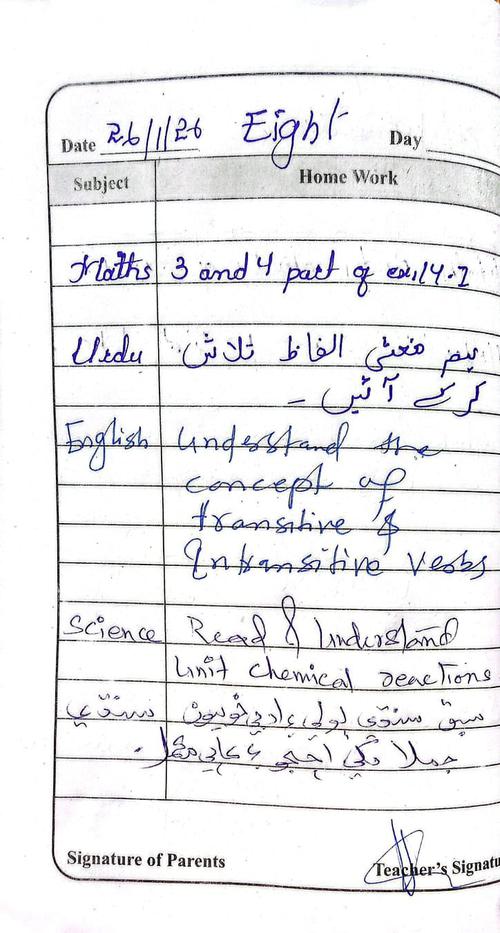 Date 26/1/26 Eight Day
Subject Home Work
Maths 3 and 4 part of ex.14.2
Urdu ہم معنی الفاظ تلاش
کر کے آئیں ۔
English Understand the
concept of
transitive &
Intransitive Verbs
Science Read & Understand
Unit Chemical reactions
سنڌي سبق سنڌي ٻولي ۽ ادبي خوبيون
جملا لکي اچجي ۽
Signature of Parents Teacher's Signatu